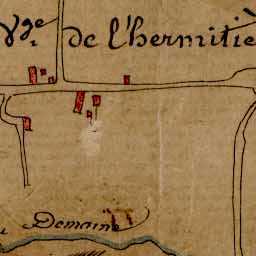 Vge. de l'hermitiè
Demaine